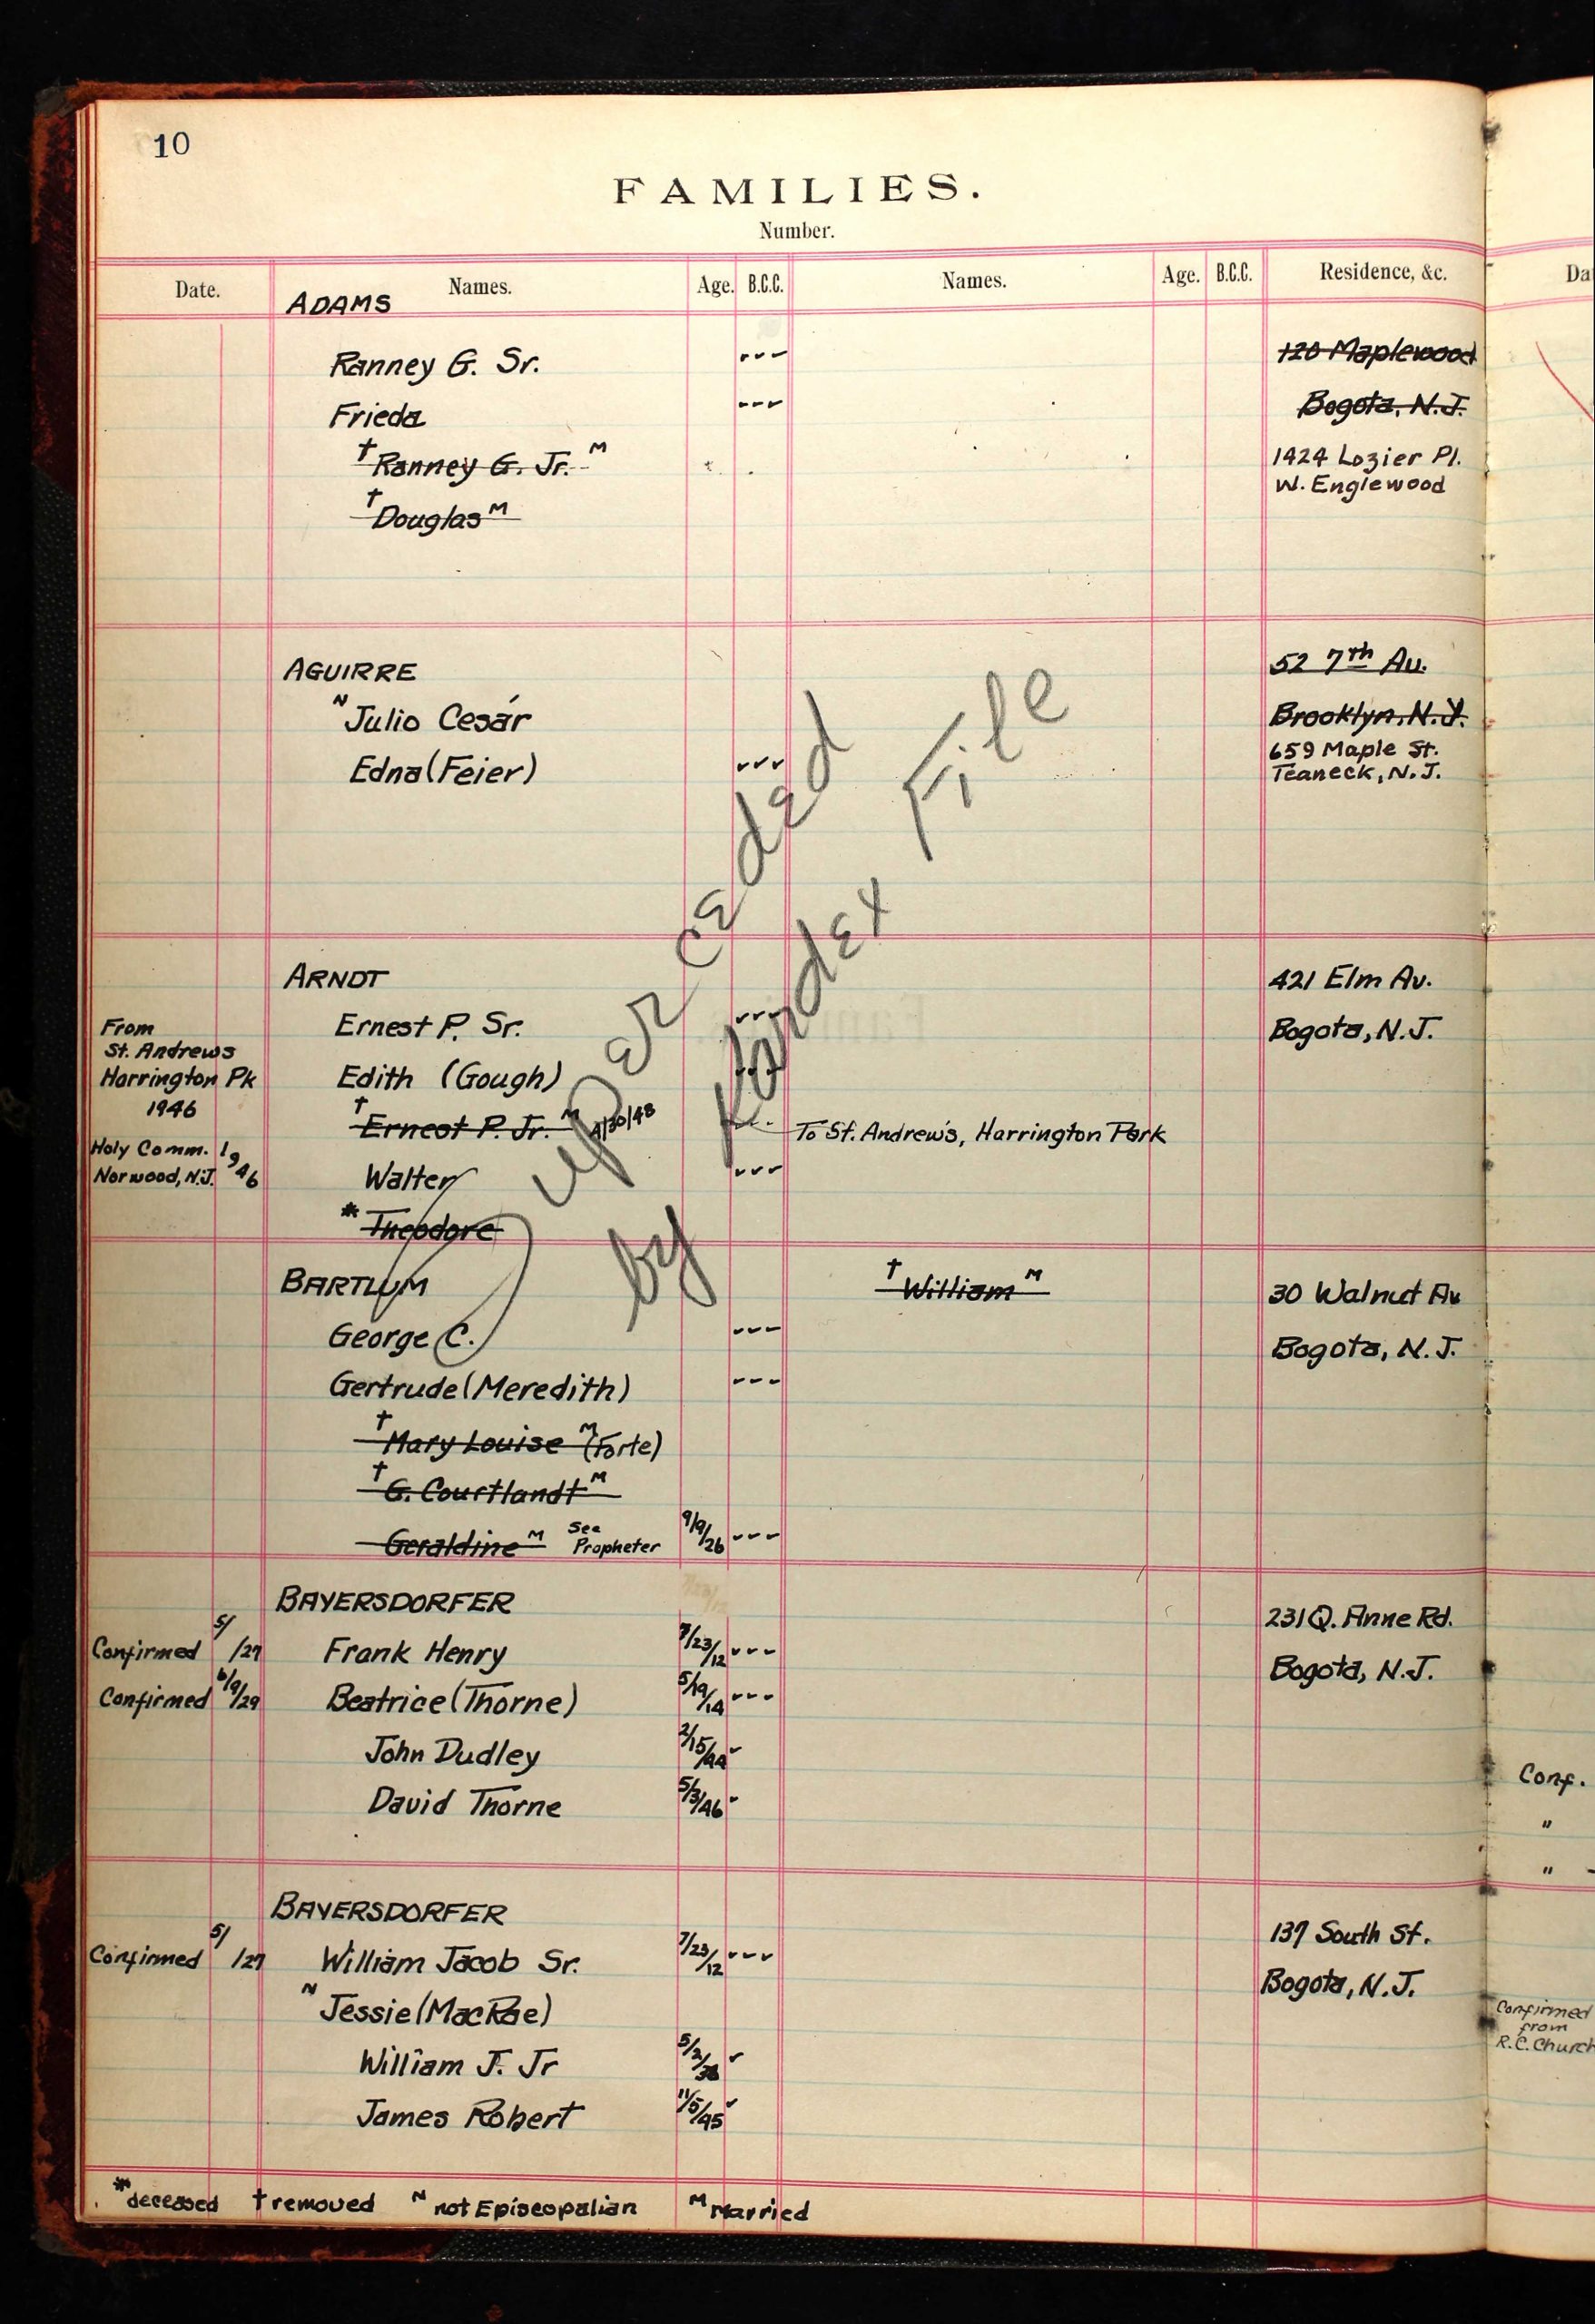 10
FAMILIES.
Number.
Date. Names. Age. B.C.C. Names. Age. B.C.C. Residence, &c. Da
ADAMS
Ranney G. Sr. ✓✓✓ 120 Maplewood
Frieda ✓✓✓ Bogota, N.J.
† Ranney G. Jr. M 1424 Lozier Pl.
W. Englewood
† Douglas M
AGUIRRE 52 7th Av.
N Julio Cesár Brooklyn, N.Y.
659 Maple St.
Edna (Feier) ✓✓✓ Teaneck, N.J.
Superceded
by Kardex File
ARNDT 421 Elm Av.
From Ernest P. Sr. ✓✓✓ Bogota, N.J.
St. Andrews
Harrington Pk Edith (Gough) ✓✓✓
1946
† Ernest P. Jr. M 4/30/48 To St. Andrew's, Harrington Park
Holy Comm. 1946
Norwood, N.J. Walter ✓✓✓
* Theodore
BARTLUM † William M 30 Walnut Av
George C. ✓✓✓ Bogota, N.J.
Gertrude (Meredith) ✓✓✓
† Mary Louise M (Forte)
† G. Courtlandt M
Geraldine M See Propheter 9/9/26 ✓✓✓
BAYERSDORFER 231 Q. Anne Rd.
Confirmed 5/ /27 Frank Henry 7/23/12 ✓✓✓ Bogota, N.J.
Confirmed 6/9/29 Beatrice (Thorne) 5/19/14 ✓✓✓
John Dudley 2/15/44 ✓
Conf.
David Thorne 5/3/46 ✓
"
"
BAYERSDORFER 137 South St.
Confirmed 5/ /27 William Jacob Sr. 7/23/12 ✓✓✓ Bogota, N.J.
N Jessie (MacRae) Confirmed
from
R.C. Church
William J. Jr 5/2/38 ✓
James Robert 11/5/45 ✓
* deceased † removed N not Episcopalian M Married